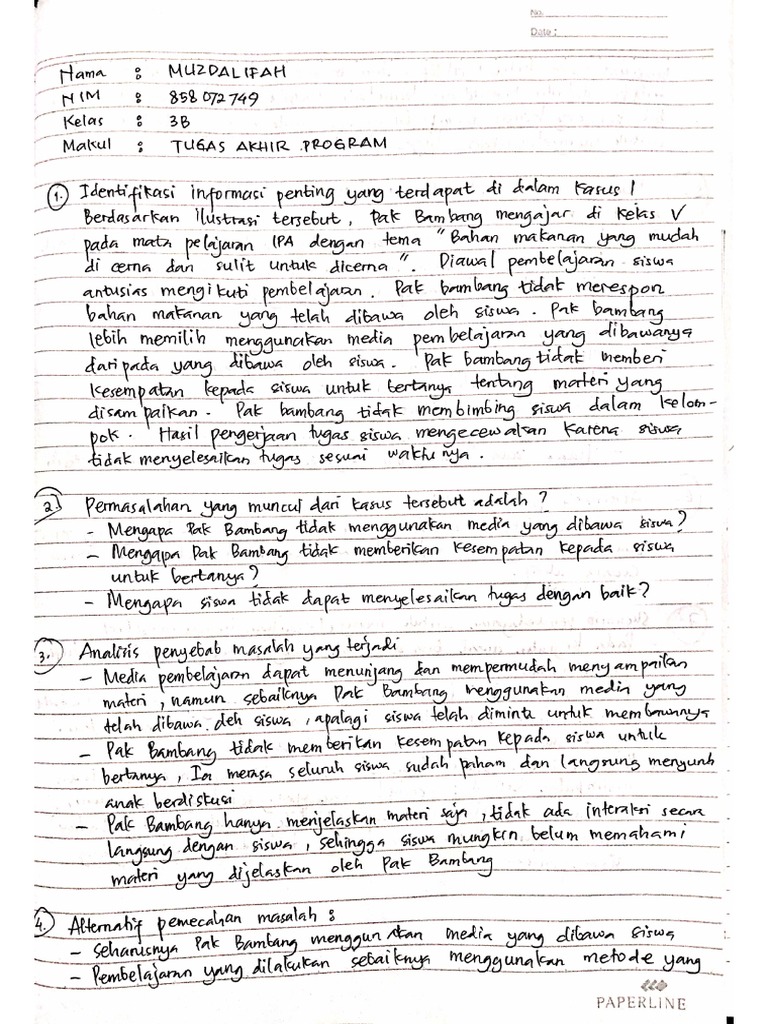 No.
Date :
Nama : MUZDALIFAH
NIM : 858 072 749
Kelas : 3B
Makul : TUGAS AKHIR PROGRAM
1. Identifikasi informasi penting yang terdapat di dalam kasus 1
Berdasarkan ilustrasi tersebut, Pak Bambang mengajar di kelas V
pada mata pelajaran IPA dengan tema "Bahan makanan yang mudah
di cerna dan sulit untuk dicerna". Diawal pembelajaran siswa
antusias mengikuti pembelajaran. Pak bambang tidak merespon
bahan makanan yang telah dibawa oleh siswa. Pak bambang
lebih memilih menggunakan media pembelajaran yang dibawanya
daripada yang dibawa oleh siswa. Pak bambang tidak memberi
kesempatan kepada siswa untuk bertanya tentang materi yang
disampaikan. Pak bambang tidak membimbing siswa dalam kelom-
pok. Hasil pengerjaan tugas siswa mengecewakan karena siswa
tidak menyelesaikan tugas sesuai waktunya.
2. Permasalahan yang muncul dari kasus tersebut adalah ?
- Mengapa Pak Bambang tidak menggunakan media yang dibawa siswa?
- Mengapa Pak Bambang tidak memberikan kesempatan kepada siswa
untuk bertanya?
- Mengapa siswa tidak dapat menyelesaikan tugas dengan baik?
3. Analisis penyebab masalah yang terjadi
- Media pembelajaran dapat menunjang dan mempermudah menyampaikan
materi, namun sebaiknya Pak Bambang menggunakan media yang
telah dibawa oleh siswa, apalagi siswa telah diminta untuk membawanya
- Pak Bambang tidak memberikan kesempatan kepada siswa untuk
bertanya, Ia merasa seluruh siswa sudah paham dan langsung menyuruh
anak berdiskusi
- Pak Bambang hanya menjelaskan materi saja, tidak ada interaksi secara
langsung dengan siswa, sehingga siswa mungkin belum memahami
materi yang dijelaskan oleh Pak Bambang
4. Alternatif pemecahan masalah :
- Seharusnya Pak Bambang menggunakan media yang dibawa siswa
- Pembelajaran yang dilakukan sebaiknya menggunakan metode yang
PAPERLINE